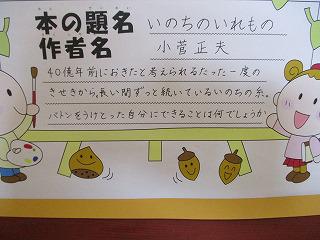 本の題名 いのちのいれもの
作者名 小菅正夫
40億年前におきたと考えられるたった一度の
きせきから、長い間ずっと続いているいのちの糸。
バトンをうけとった自分にできることは何でしょうか